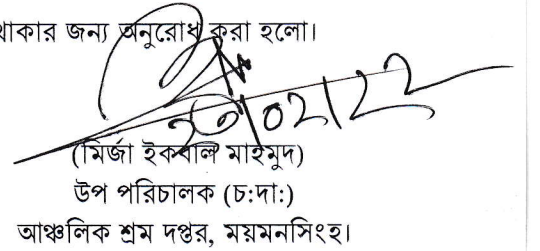 থাকার জন্য অনুরোধ করা হলো।
(মির্জা ইকবাল মাহমুদ)
উপ পরিচালক (চ:দা:)
আঞ্চলিক শ্রম দপ্তর, ময়মনসিংহ।